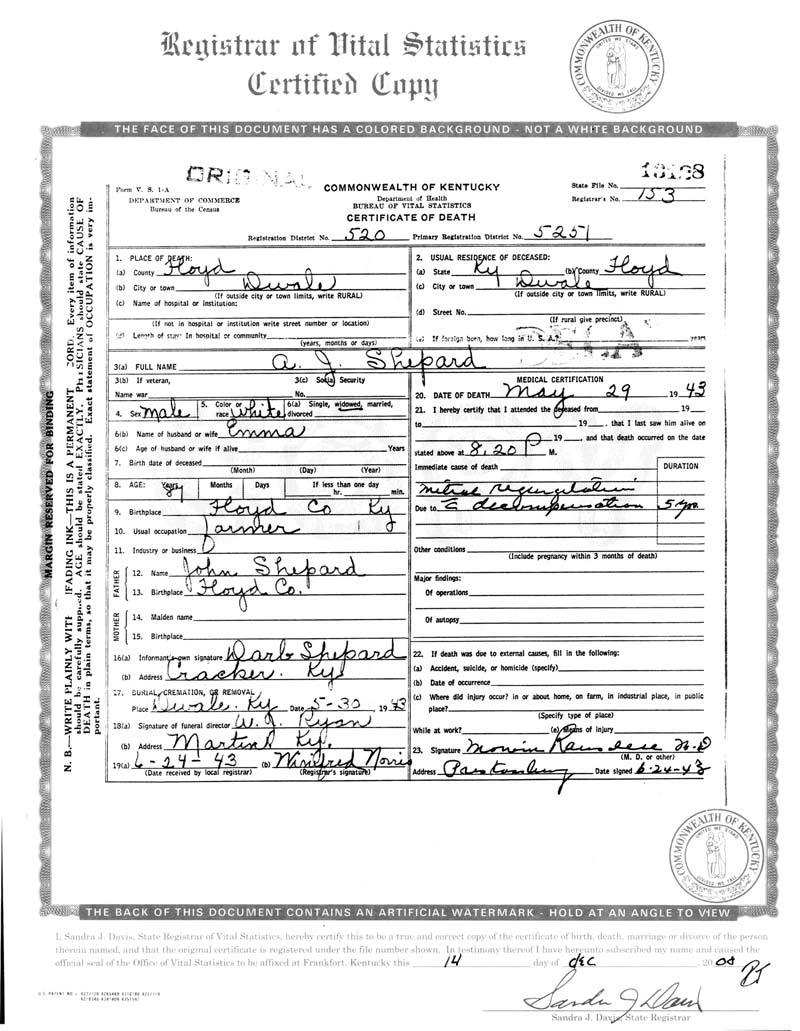 Registrar of Vital Statistics
Certified Copy
COMMONWEALTH OF KENTUCKY
UNITED WE STAND
DIVIDED WE FALL
THE FACE OF THIS DOCUMENT HAS A COLORED BACKGROUND - NOT A WHITE BACKGROUND
ORIGINAL
Form V. S. 1-A
DEPARTMENT OF COMMERCE
Bureau of the Census
COMMONWEALTH OF KENTUCKY
Department of Health
BUREAU OF VITAL STATISTICS
CERTIFICATE OF DEATH
State File No.
Registrar's No. 153
Registration District No. 520 Primary Registration District No. 5251
MARGIN RESERVED FOR BINDING
N. B.—WRITE PLAINLY WITH UNFADING INK—THIS IS A PERMANENT RECORD. Every item of information
should be carefully supplied. AGE should be stated EXACTLY. PHYSICIANS should state CAUSE OF
DEATH in plain terms, so that it may be properly classified. Exact statement of OCCUPATION is very im-
portant.
1. PLACE OF DEATH:
(a) County Floyd
(b) City or town Dwale
(If outside city or town limits, write RURAL)
(c) Name of hospital or institution:
(If not in hospital or institution write street number or location)
(d) Length of stay: In hospital or community
(years, months or days)
2. USUAL RESIDENCE OF DECEASED:
(a) State Ky (b) County Floyd
(c) City or town Dwale
(If outside city or town limits, write RURAL)
(d) Street No.
(If rural give precinct)
(e) If foreign born, how long in U. S. A.? years
3(a) FULL NAME A. J. Shepard
3(b) If veteran, 3(c) Social Security
Name war No.
4. Sex Male 5. Color or race White 6(a) Single, widowed, married, divorced
6(b) Name of husband or wife Emma
6(c) Age of husband or wife if alive Years
7. Birth date of deceased
(Month) (Day) (Year)
8. AGE: Years Months Days If less than one day
hr. min.
9. Birthplace Floyd Co Ky
10. Usual occupation Farmer
11. Industry or business
FATHER
12. Name John Shepard
13. Birthplace Floyd Co.
MOTHER
14. Maiden name
15. Birthplace
16(a) Informant's own signature Darb Shepard
(b) Address Cracker Ky
17. BURIAL, CREMATION, OR REMOVAL
Place Dwale. Ky Date 5-30 1943
18(a) Signature of funeral director W. J. Ryan
(b) Address Martin Ky.
19(a) 6-24-43 (b) Winifred Norris
(Date received by local registrar) (Registrar's signature)
MEDICAL CERTIFICATION
20. DATE OF DEATH May 29 1943
21. I hereby certify that I attended the deceased from 19
to 19 , that I last saw him alive on
19 , and that death occurred on the date
stated above at 8.20 P M.
Immediate cause of death DURATION
Mitral regurgitation
Due to c decompensation 5 yrs
Other conditions
(Include pregnancy within 3 months of death)
Major findings:
Of operations
Of autopsy
22. If death was due to external causes, fill in the following:
(a) Accident, suicide, or homicide (specify)
(b) Date of occurrence
(c) Where did injury occur? in or about home, on farm, in industrial place, in public
place?
(Specify type of place)
While at work? (e) Means of injury
23. Signature M.D
(M. D. or other)
Address Prestonsburg Date signed 6-24-43
COMMONWEALTH OF KENTUCKY
UNITED WE STAND
DIVIDED WE FALL
THE BACK OF THIS DOCUMENT CONTAINS AN ARTIFICIAL WATERMARK - HOLD AT AN ANGLE TO VIEW
I, Sandra J. Davis, State Registrar of Vital Statistics, hereby certify this to be a true and correct copy of the certificate of birth, death, marriage or divorce of the person
therein named, and that the original certificate is registered under the file number shown. In testimony thereof I have hereunto subscribed my name and caused the
official seal of the Office of Vital Statistics to be affixed at Frankfort, Kentucky this 14 day of dec , 2008
Sandra J Davis
Sandra J. Davis, State Registrar